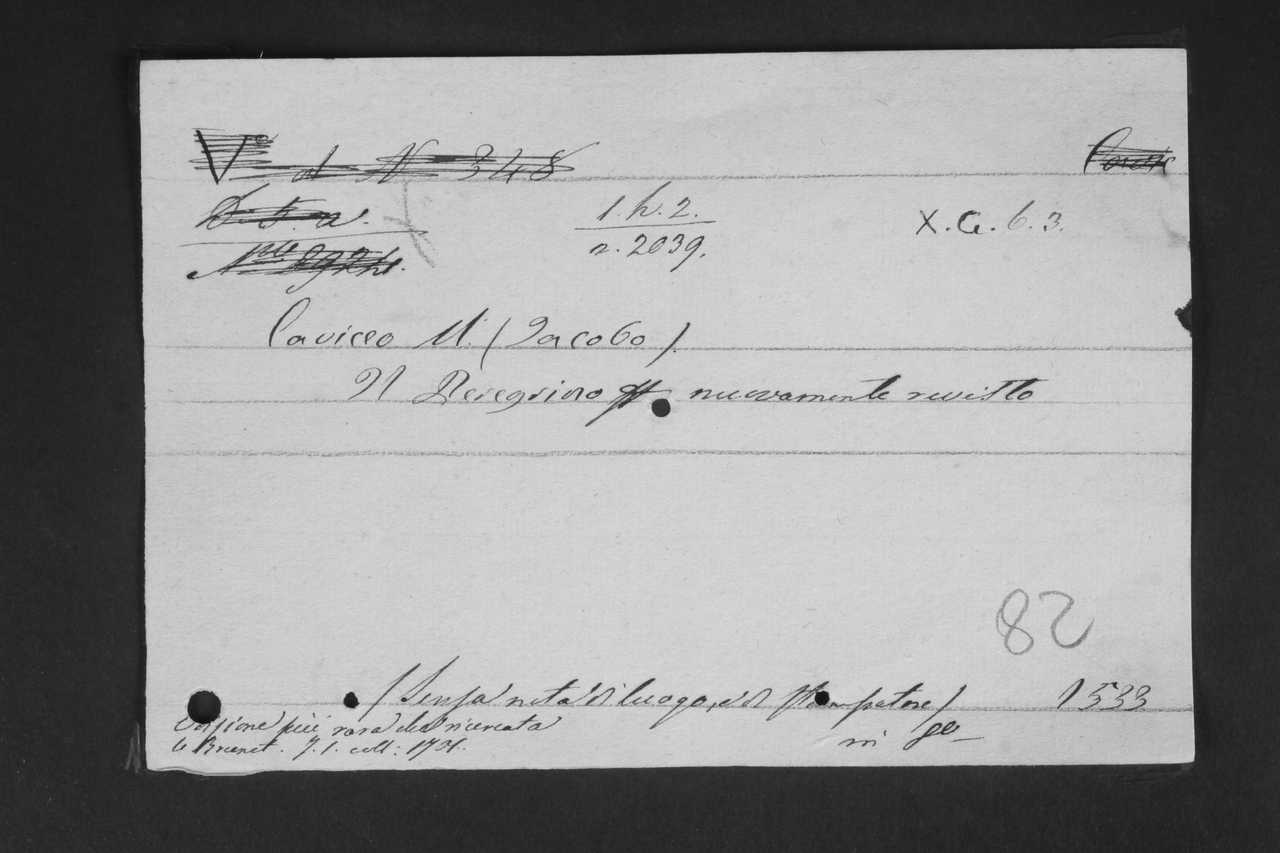 V d N 348
D. 5. a.
1. h. 2.
n. 2039.
X. G. 6. 3.
Caviceo M. (Jacobo).
Il Peregrino nuovamente revisto
82
(Senza nota di luogo, e di stampatore) 1533
in 8º
Edizione più rara che ricercata
Brunet. T. 1. coll: 1701.